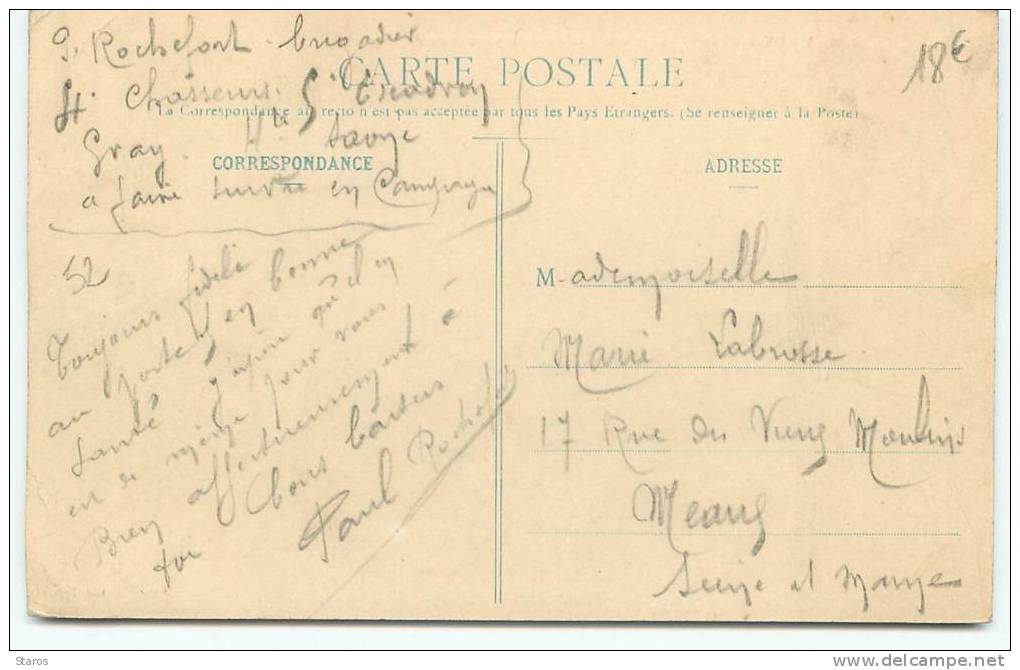 P. Rochefort brigadier
18€
CARTE POSTALE
4e Chasseurs 5e Escadron
La Correspondance au recto n'est pas acceptée par tous les Pays Etrangers. (Se renseigner à la Poste)
Gray Hte Saone
CORRESPONDANCE
a faire suivre en Campagne
52
Toujours fidèle
au poste, en bonne
santé j'espère qu'il en
est de même pour vous
Bien affectueusement à
tou
bons baisers
Paul Rochefort
ADRESSE
M-ademoiselle
Marie Labrosse
17 Rue du Vieux Moulin
Meaux
Seine et Marne
Staros
www.delcampe.net